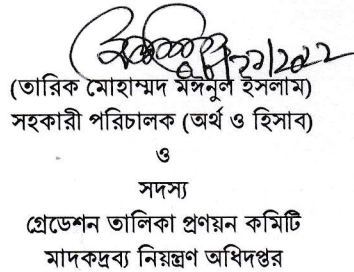 (তারিক মোহাম্মদ মঈনুল ইসলাম)
সহকারী পরিচালক (অর্থ ও হিসাব)
ও
সদস্য
গ্রেডেশন তালিকা প্রণয়ন কমিটি
মাদকদ্রব্য নিয়ন্ত্রণ অধিদপ্তর